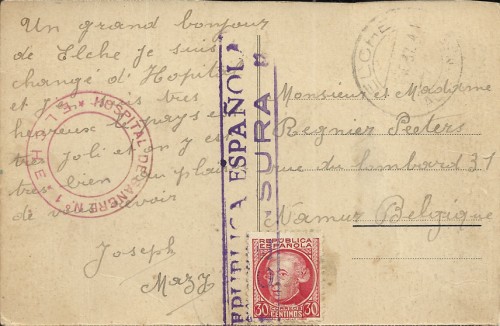 Un grand bonjour
de Elche je suis
change d'Hopital
et tres
heureux pays et
tres joli et on y est
tres bien au plaisir
de vous revoir
Joseph
Mazy
HOSPITAL DE SANGRE N.º 1
ELCHE
REPUBLICA ESPAÑOLA
CENSURA
REPUBLICA ESPAÑOLA
ELCHE
Monsieur et Madame
Regnier Peeters
rue du lombard 31
Namur Belgique
REPUBLICA
ESPAÑOLA
30 30
CENTIMOS